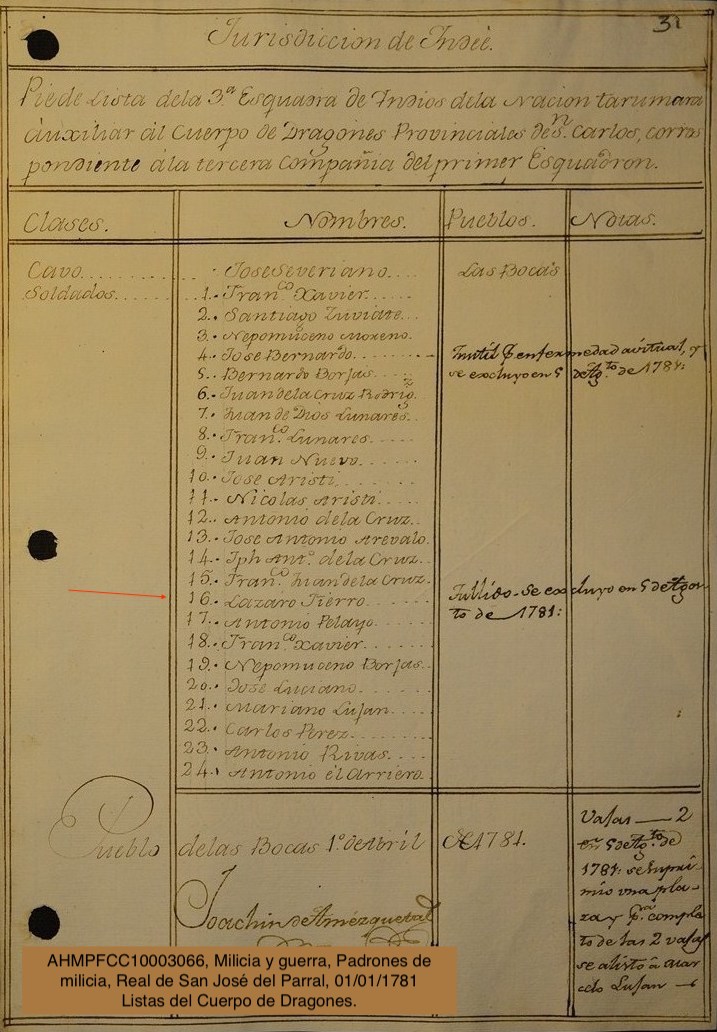 31
Jurisdiccion de Indeé.
Pie de Lista dela 3.ª Esquadra de Indios dela Nacion tarumara
Auxiliar al Cuerpo de Dragones Provinciales de Sⁿ. Carlos, corres
pondiente ála tercera Compañia del primer Esquadron.
Clases. Nombres. Pueblos. Notas.
Cavo Jose Severiano Las Bocas
Soldados 1. Fran.co Xavier
2. Santiago Zuviate
3. Nepomuceno Moreno
4. Jose Bernardo Inutil P enfermedad avitual, y
5. Bernardo Borjas se excluyo en 5 de Ag.to de 1781:
6. Juan dela Cruz Rodrig.z
7. Juan de Dios Lunares
8. Fran.co Lunares
9. Juan Nuevo
10. Jose Aristi
11. Nicolas Aristi
12. Antonio dela Cruz
13. Jose Antonio Arevalo
14. Jph Ant.o dela Cruz
15. Fran.co Juan dela Cruz
16. Lazaro Fierro Tullido - se excluyo en 5 de Agos-
17. Antonio Pelayo to de 1781:
18. Fran.co Xavier
19. Nepomuceno Borjas
20. Jose Luciano
21. Mariano Lujan
22. Carlos Perez
23. Antonio Rivas
24. Antonio el Arriero
Pueblo delas Bocas 1.º de Abril de 1781.
Joachin de Amézqueta
Vajas — 2
en 5 de Ag.to de
1781: se supri-
mio una pla-
za y p.a comple
to de las 2 vajas
se alisto â Mar
celo Lujan
AHMPFCC10003066, Milicia y guerra, Padrones de
milicia, Real de San José del Parral, 01/01/1781
Listas del Cuerpo de Dragones.